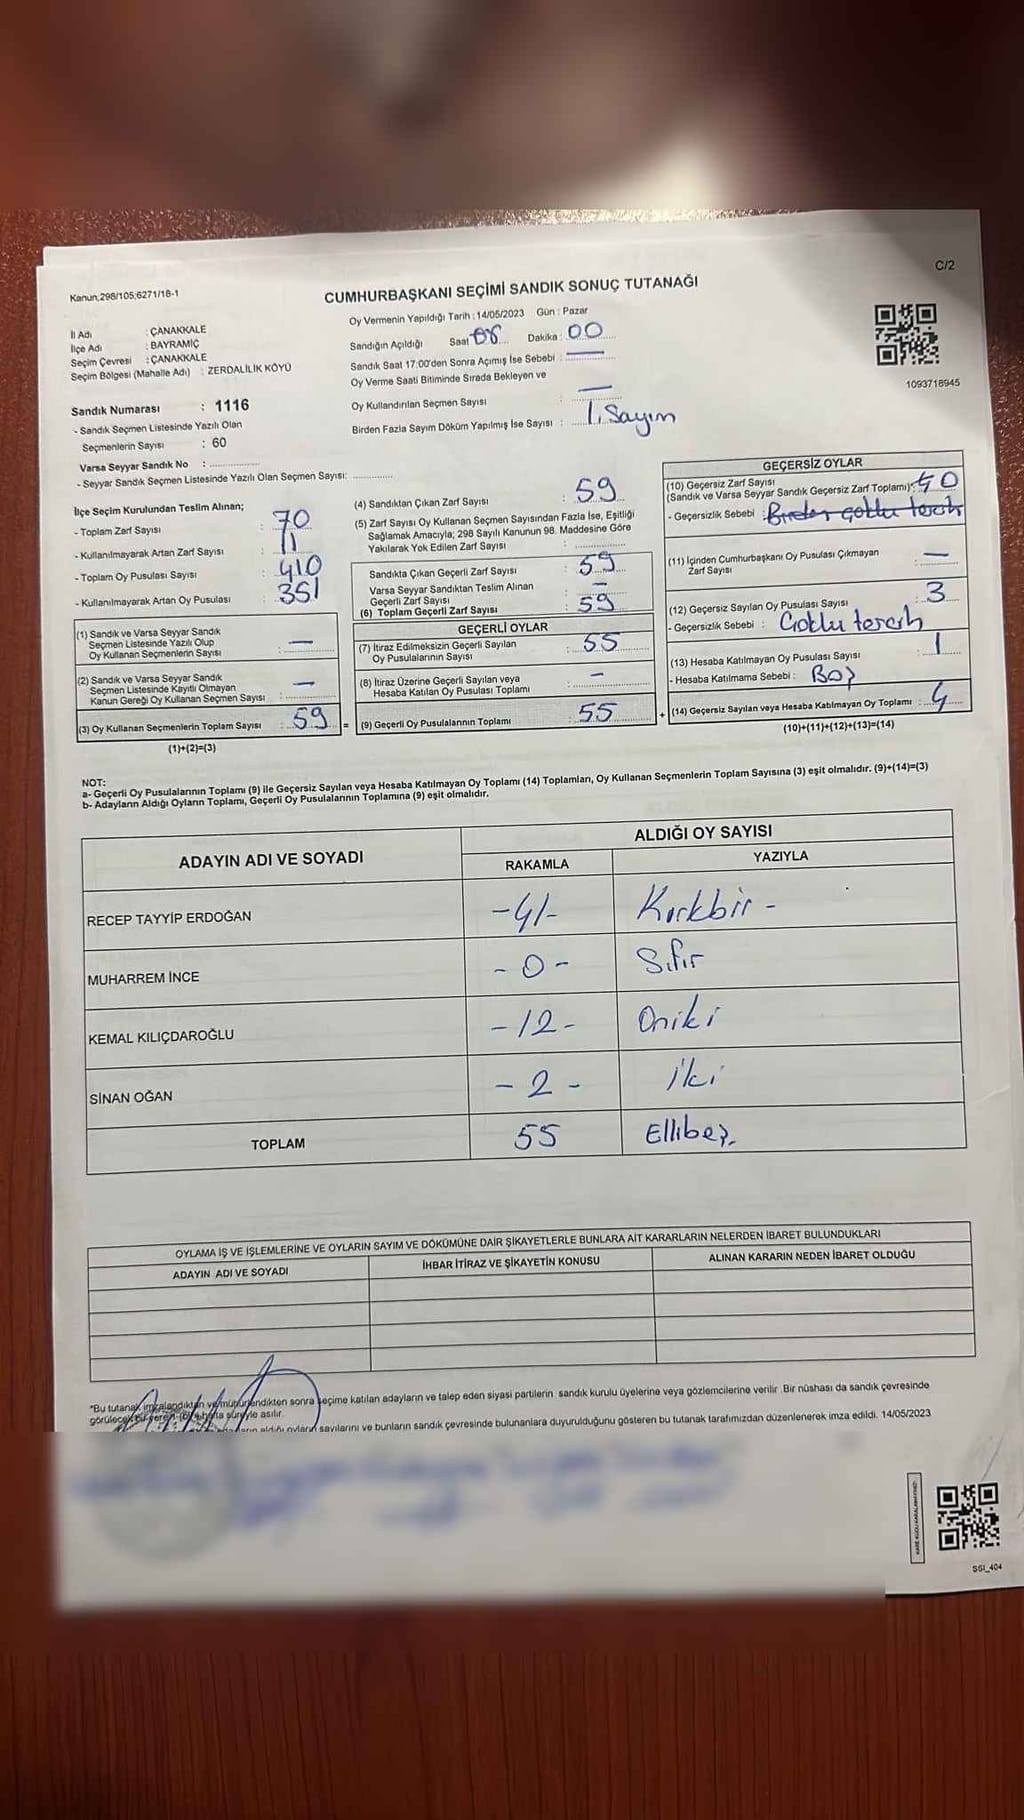 C/2
Kanun;298/105;6271/18-1
CUMHURBAŞKANI SEÇİMİ SANDIK SONUÇ TUTANAĞI
İl Adı : ÇANAKKALE
İlçe Adı : BAYRAMİÇ
Seçim Çevresi : ÇANAKKALE
Seçim Bölgesi (Mahalle Adı) : ZERDALİLİK KÖYÜ
Oy Vermenin Yapıldığı Tarih : 14/05/2023 Gün : Pazar
Sandığın Açıldığı Saat 08 Dakika : 00
Sandık Saat 17:00'den Sonra Açımış İse Sebebi : —
Oy Verme Saati Bitiminde Sırada Bekleyen ve
Oy Kullandırılan Seçmen Sayısı : —
Birden Fazla Sayım Döküm Yapılmış İse Sayısı : 1. Sayım
1093718945
Sandık Numarası : 1116
- Sandık Seçmen Listesinde Yazılı Olan
Seçmenlerin Sayısı : 60
Varsa Seyyar Sandık No :
- Seyyar Sandık Seçmen Listesinde Yazılı Olan Seçmen Sayısı:
İlçe Seçim Kurulundan Teslim Alınan;
- Toplam Zarf Sayısı : 70
- Kullanılmayarak Artan Zarf Sayısı : 11
- Toplam Oy Pusulası Sayısı : 410
- Kullanılmayarak Artan Oy Pusulası : 351
(1) Sandık ve Varsa Seyyar Sandık
Seçmen Listesinde Yazılı Olup
Oy Kullanan Seçmenlerin Sayısı : —
(2) Sandık ve Varsa Seyyar Sandık
Seçmen Listesinde Kayıtlı Olmayan
Kanun Gereği Oy Kullanan Seçmen Sayısı : —
(3) Oy Kullanan Seçmenlerin Toplam Sayısı : 59 =
(1)+(2)=(3)
(4) Sandıktan Çıkan Zarf Sayısı : 59
(5) Zarf Sayısı Oy Kullanan Seçmen Sayısından Fazla İse, Eşitliği
Sağlamak Amacıyla; 298 Sayılı Kanunun 98. Maddesine Göre
Yakılarak Yok Edilen Zarf Sayısı :
Sandıkta Çıkan Geçerli Zarf Sayısı : 59
Varsa Seyyar Sandıktan Teslim Alınan
Geçerli Zarf Sayısı : —
(6) Toplam Geçerli Zarf Sayısı : 59
GEÇERLİ OYLAR
(7) İtiraz Edilmeksizin Geçerli Sayılan
Oy Pusulalarının Sayısı : 55
(8) İtiraz Üzerine Geçerli Sayılan veya
Hesaba Katılan Oy Pusulası Toplamı : —
(9) Geçerli Oy Pusulalarının Toplamı : 55 +
GEÇERSİZ OYLAR
(10) Geçersiz Zarf Sayısı
(Sandık ve Varsa Seyyar Sandık Geçersiz Zarf Toplamı) : 0
- Geçersizlik Sebebi : Birden çoklu tercih
(11) İçinden Cumhurbaşkanı Oy Pusulası Çıkmayan
Zarf Sayısı : —
(12) Geçersiz Sayılan Oy Pusulası Sayısı : 3
- Geçersizlik Sebebi : Çoklu tercih
(13) Hesaba Katılmayan Oy Pusulası Sayısı : 1
- Hesaba Katılmama Sebebi : Boş
(14) Geçersiz Sayılan veya Hesaba Katılmayan Oy Toplamı : 4
(10)+(11)+(12)+(13)=(14)
NOT:
a- Geçerli Oy Pusulalarının Toplamı (9) ile Geçersiz Sayılan veya Hesaba Katılmayan Oy Toplamı (14) Toplamları, Oy Kullanan Seçmenlerin Toplam Sayısına (3) eşit olmalıdır. (9)+(14)=(3)
b- Adayların Aldığı Oyların Toplamı, Geçerli Oy Pusulalarının Toplamına (9) eşit olmalıdır.
ADAYIN ADI VE SOYADI
ALDIĞI OY SAYISI
RAKAMLA YAZIYLA
RECEP TAYYİP ERDOĞAN -41- Kırkbir -
MUHARREM İNCE - 0 - Sıfır
KEMAL KILIÇDAROĞLU -12- Oniki
SİNAN OĞAN - 2 - İki
TOPLAM 55 Ellibeş.
OYLAMA İŞ VE İŞLEMLERİNE VE OYLARIN SAYIM VE DÖKÜMÜNE DAİR ŞİKAYETLERLE BUNLARA AİT KARARLARIN NELERDEN İBARET BULUNDUKLARI
ADAYIN ADI VE SOYADI İHBAR İTİRAZ VE ŞİKAYETİN KONUSU ALINAN KARARIN NEDEN İBARET OLDUĞU
*Bu tutanak imzalandıktan ve mühürlendikten sonra seçime katılan adayların ve talep eden siyasi partilerin sandık kurulu üyelerine veya gözlemcilerine verilir. Bir nüshası da sandık çevresinde
görülecek bir yere süreyle asılır.
aldığı oyların sayılarını ve bunların sandık çevresinde bulunanlara duyurulduğunu gösteren bu tutanak tarafımızdan düzenlenerek imza edildi. 14/05/2023
SSI_404